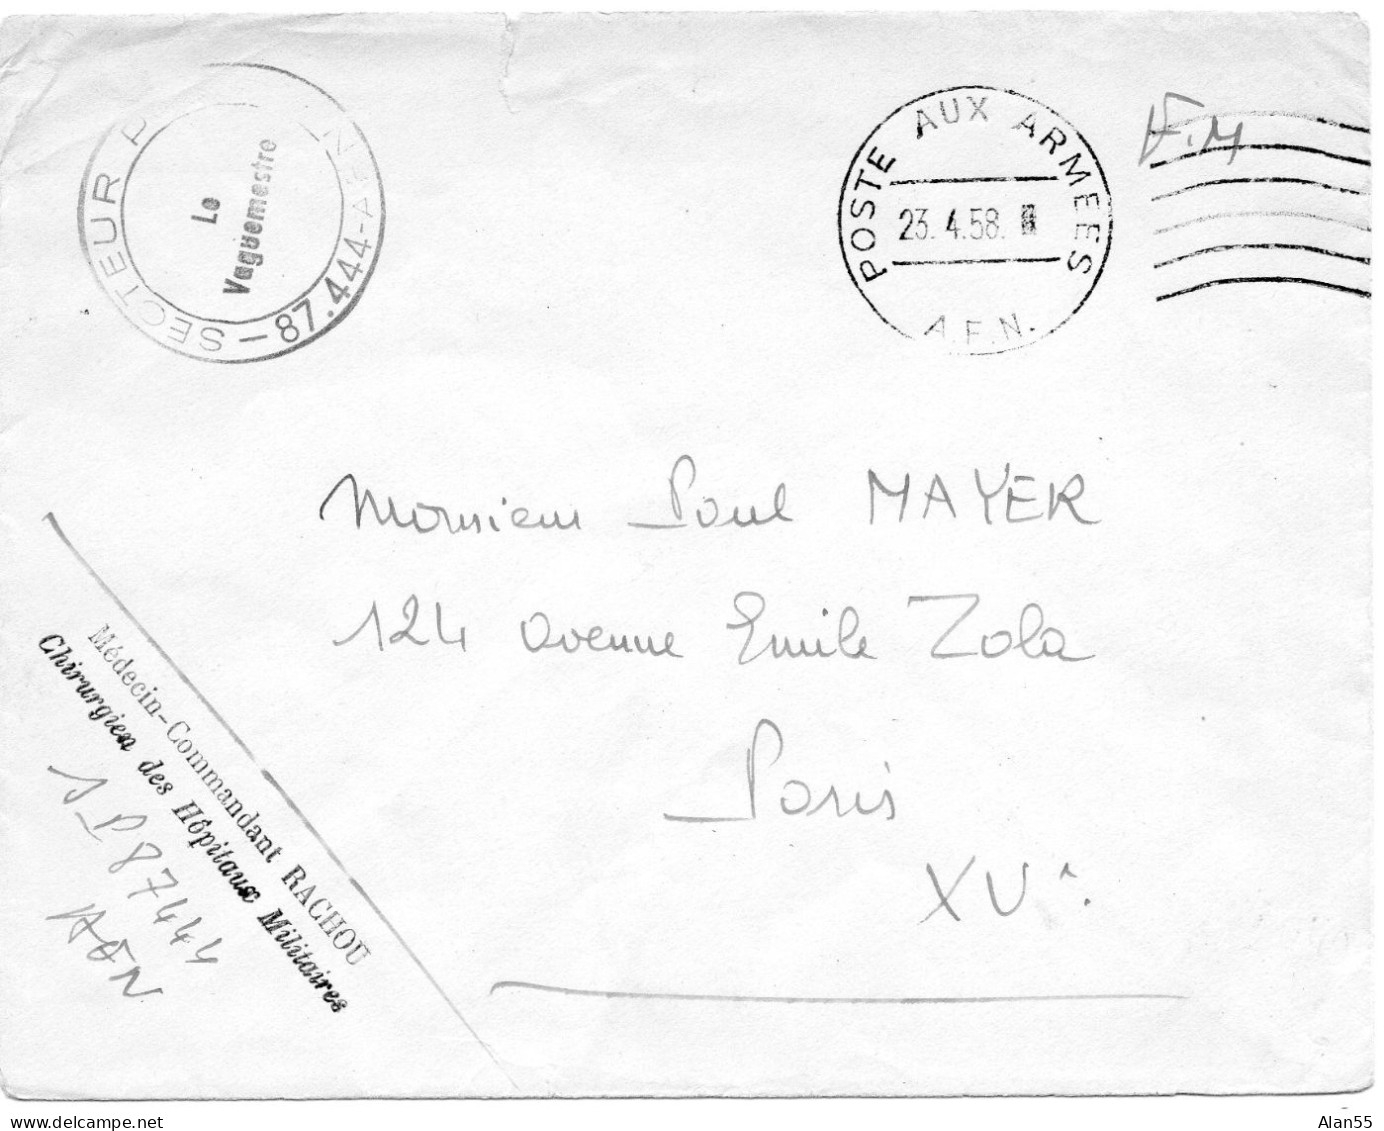 SECTEUR P
-87.444-A.F.N
Le
Vaguemestre
POSTE AUX ARMEES
23. 4.58.
A.F.N.
F.M
Monsieur Paul MAYER
124 avenue Emile Zola
Paris
XVè.
Médecin-Commandant RACHOU
Chirurgien des Hôpitaux Militaires
SP 87444
AFN
Alan55